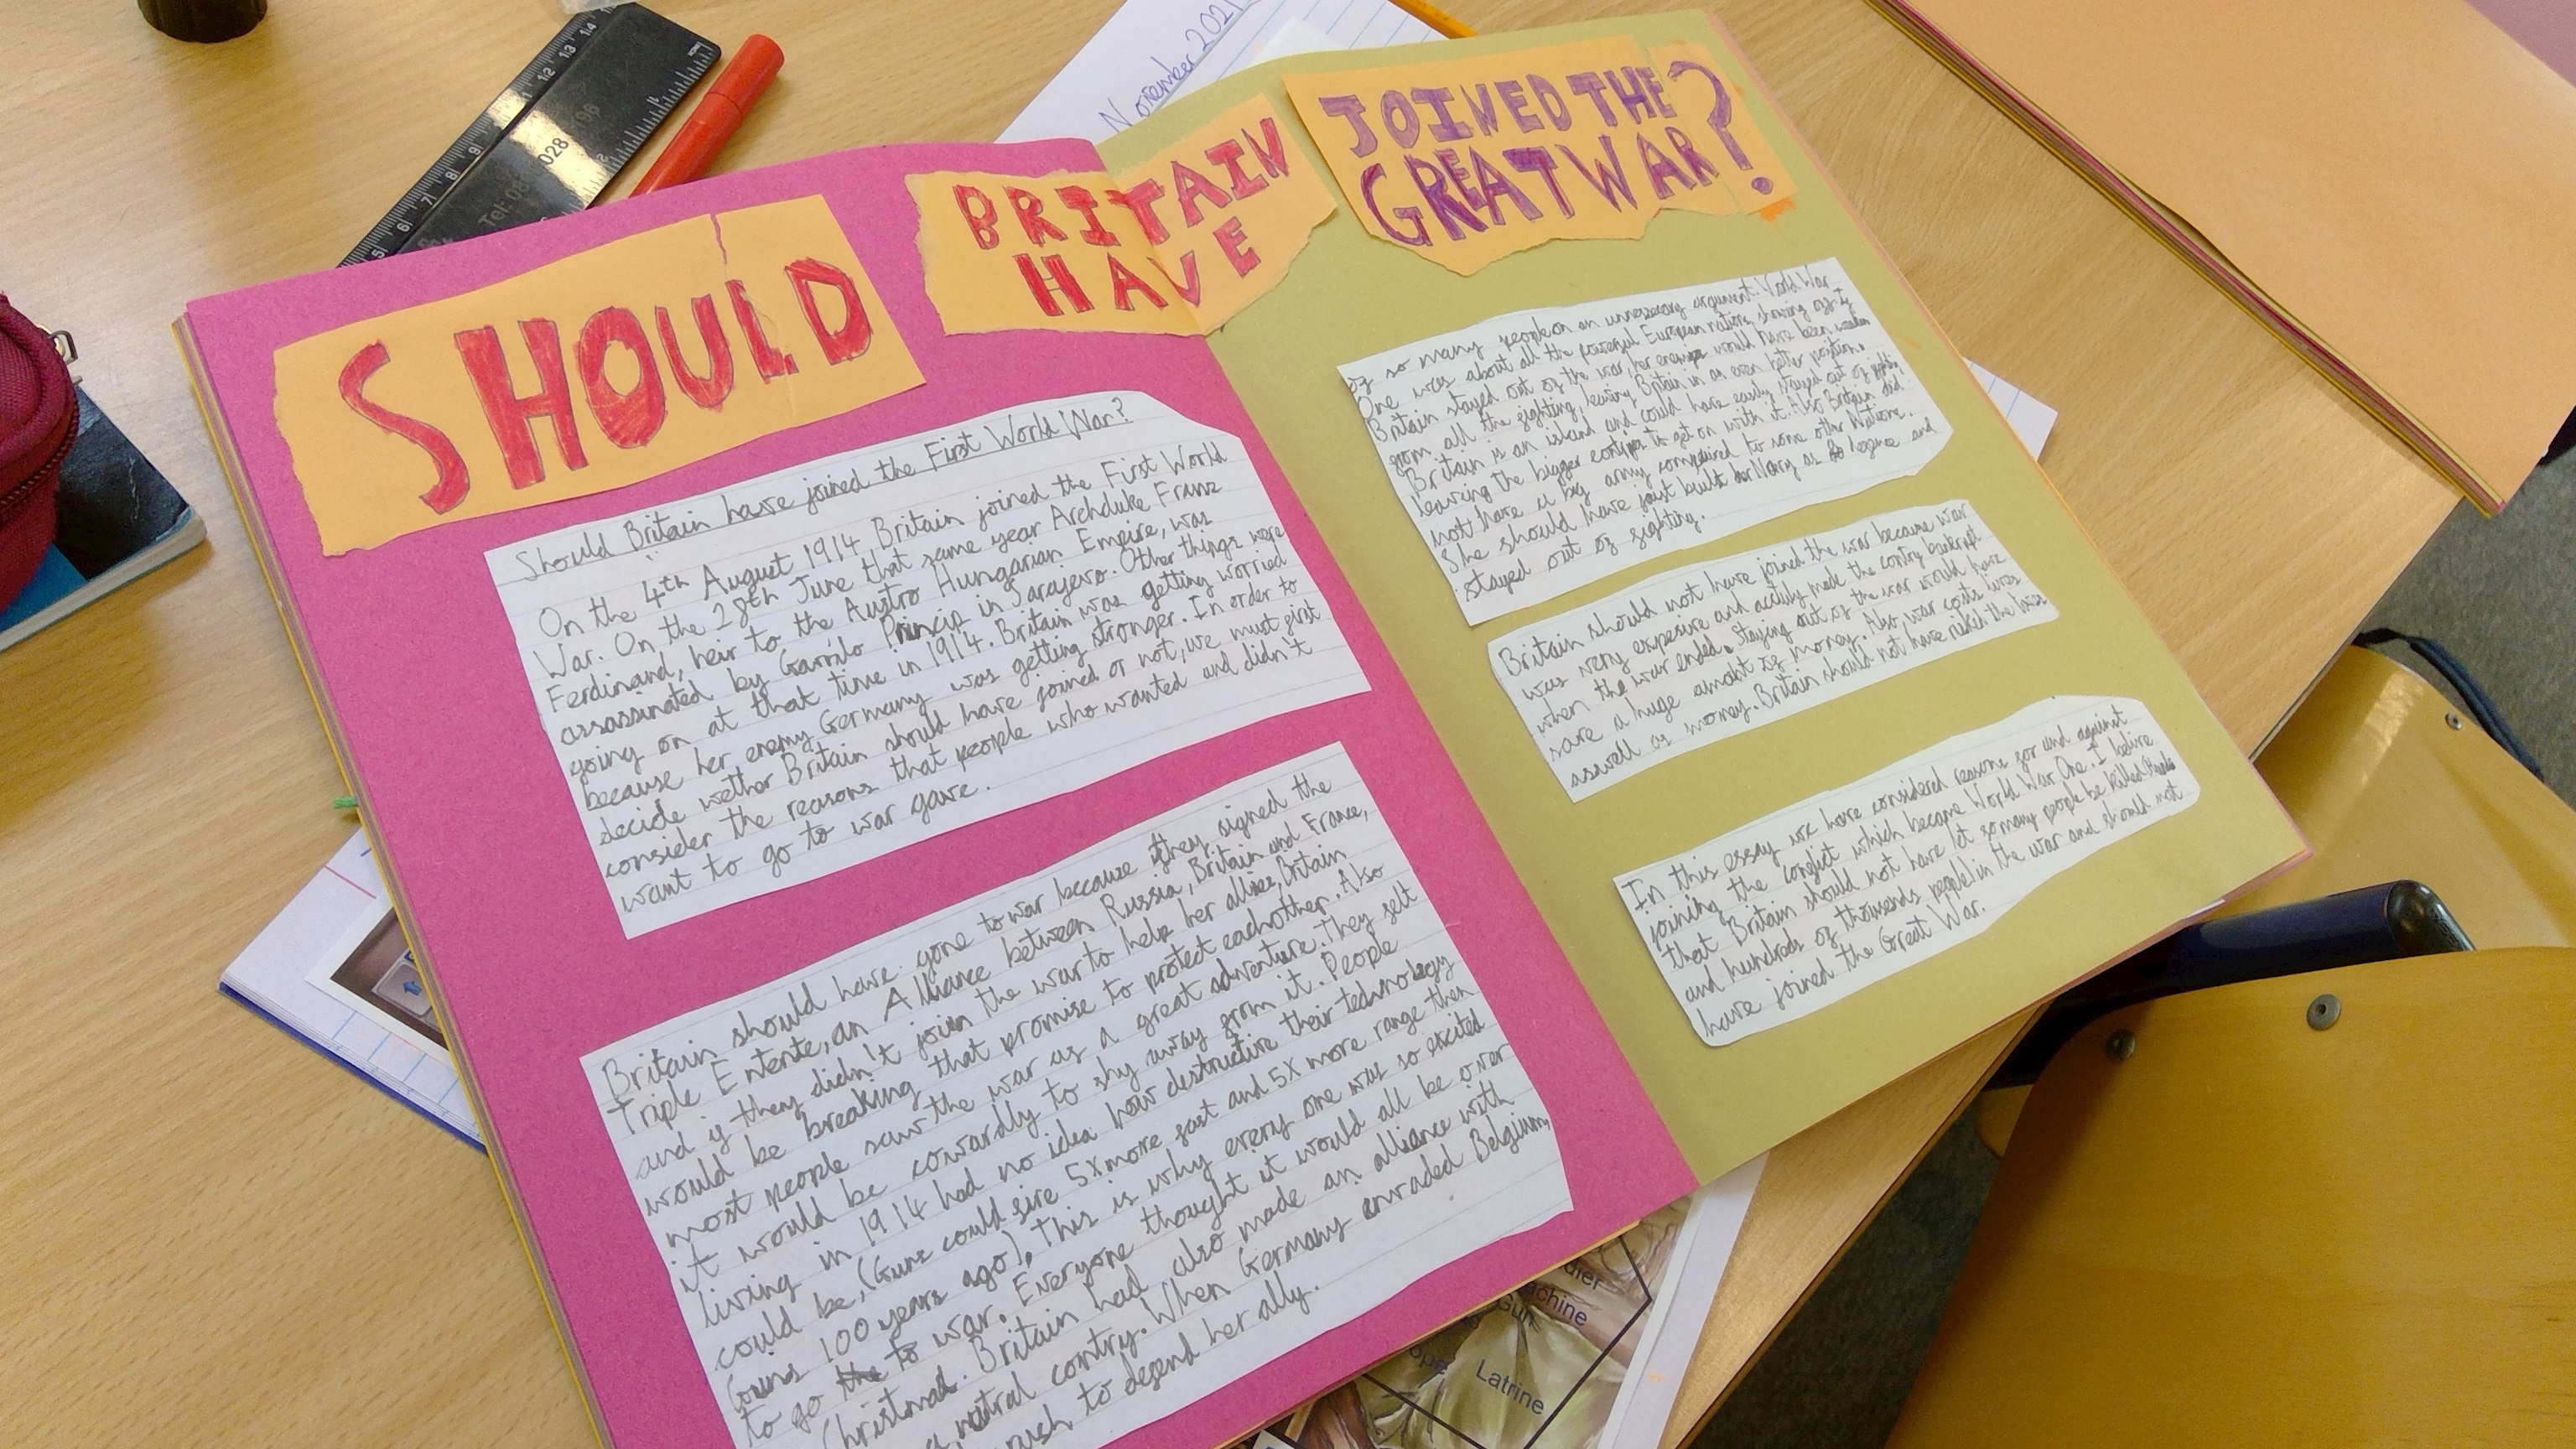 SHOULD
BRITAIN
HAVE
JOINED THE
GREAT WAR?
Should Britain have joined the First World War?
On the 4th August 1914 Britain joined the First World
War. On the 28th June that same year Archduke Franz
Ferdinand, heir to the Austro Hungarian Empire, was
assassinated by Gavrilo Princip in Sarajevo. Other things were
going on at that time in 1914. Britain was getting worried
because her enemy Germany was getting stronger. In order to
decide wether Britain should have joined or not, we must first
consider the reasons that people who wanted and didn't
want to go to war gave.
Britain should have gone to war because they signed the
Triple Entente, an Alliance between Russia, Britain and France,
and if they didn't join the war to help her allies, Britain
would be breaking that promise to protect eachother. Also
most people saw the war as a great adventure. They felt
it would be cowardly to shy away from it. People
living in 1914 had no idea how destructive their technology
could be, (Guns could fire 5X more fast and 5X more range then
Guns 100 years ago). This is why every one was so excited
to go to war. Everyone thought it would all be over
Christmas. Britain had also made an alliance with
netral contry. When Germany invaded Belgium,
rush to defend her ally.
of so many people on an unnessesary argument. World War
One was about all the powerful European nations showing off. If
Britain stayed out of the war, her enemys would have been weaken
from all the fighting, leaving Britain in as even better position.
Britain is an island and could have easily stayed out of fighting,
leaving the bigger contrys to get on with it. Also Britain did
not have a big army compaired to some other Nations.
She should have just built her Navy as defence and
stayed out of fighting.
Britain should not have joined the war because war
was very expesive and actully made the contry bankrupt
when the war ended. Staying out of the war would have
save a huge amount of money. Also, war costs lives
aswell as money. Britain should not have risked the lives
In this essay we have considered reasons for and against
joining the conflict which became World War One. I belive
that Britain should not have let so many people be killed
and hundreds of thousends people in the war and should not
have joined the Great War.
November 2021
Tel: 08
028
96
5
6
7
8
9
12
13
14
Gun
Latrine